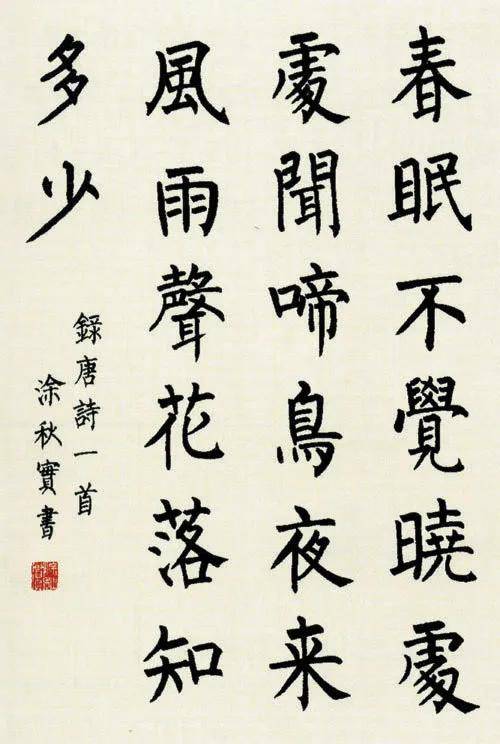 春眠不覺曉處
處聞啼鳥夜来
風雨聲花落知
多少
録唐詩一首
涂秋實書